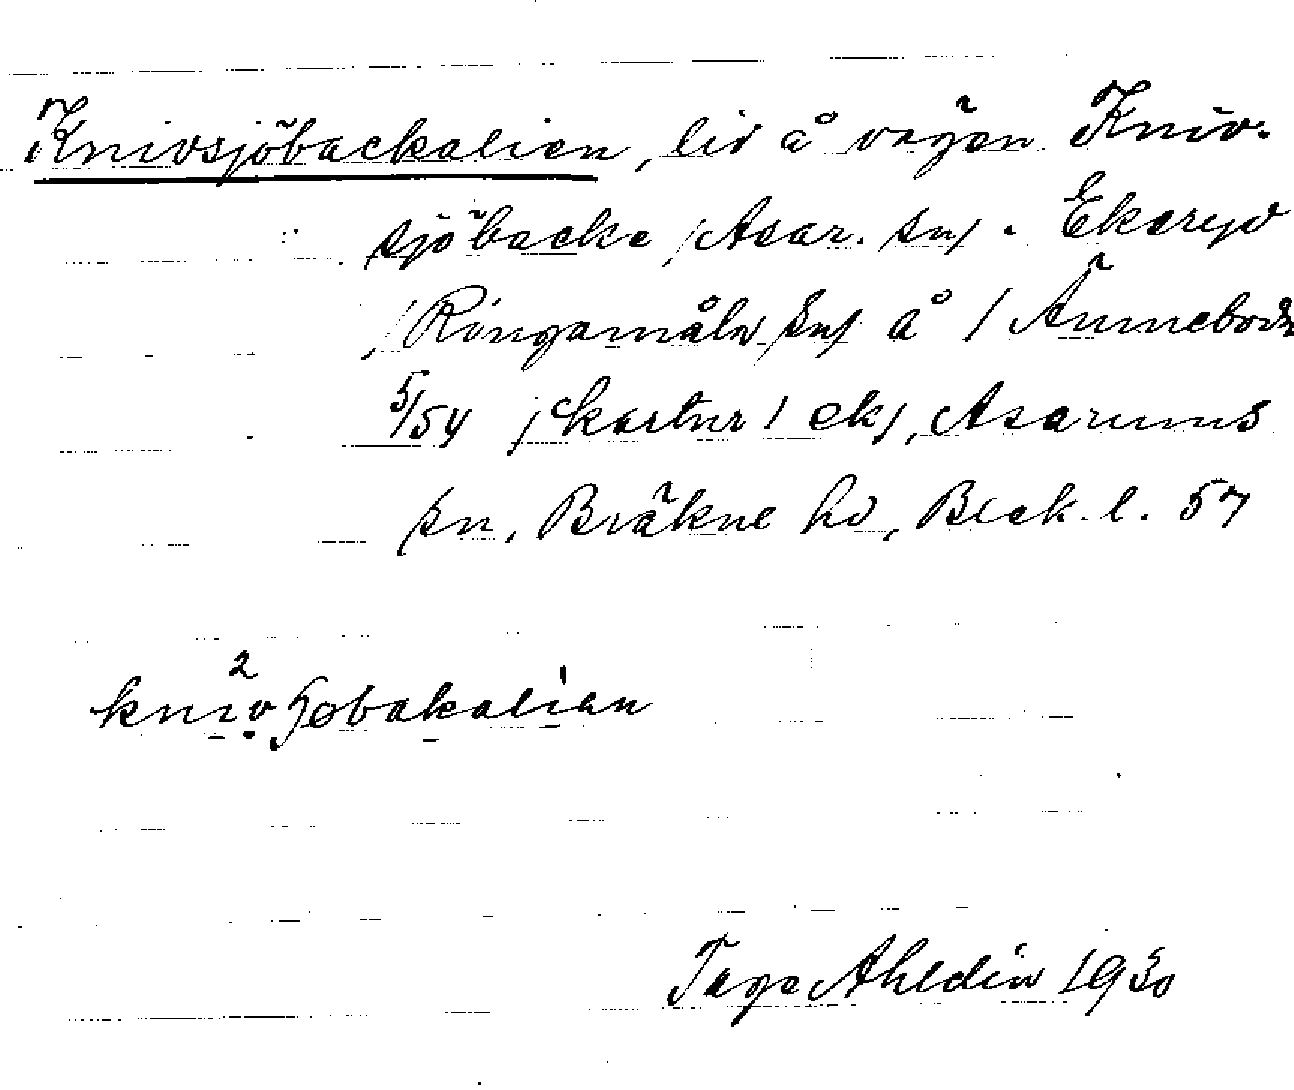 Knivsjöbackalien, lid å vägen Kniv-
sjöbacke /Asar. sn/ - Ekeryd
/Ringamåla sn/ å 1 Änneboda
5/54 /kartnr 1 ek/, Asarums
sn, Bräkne hd, Blek. l. 57
2
knivʃøbakalian
Tage Ahldin 1930